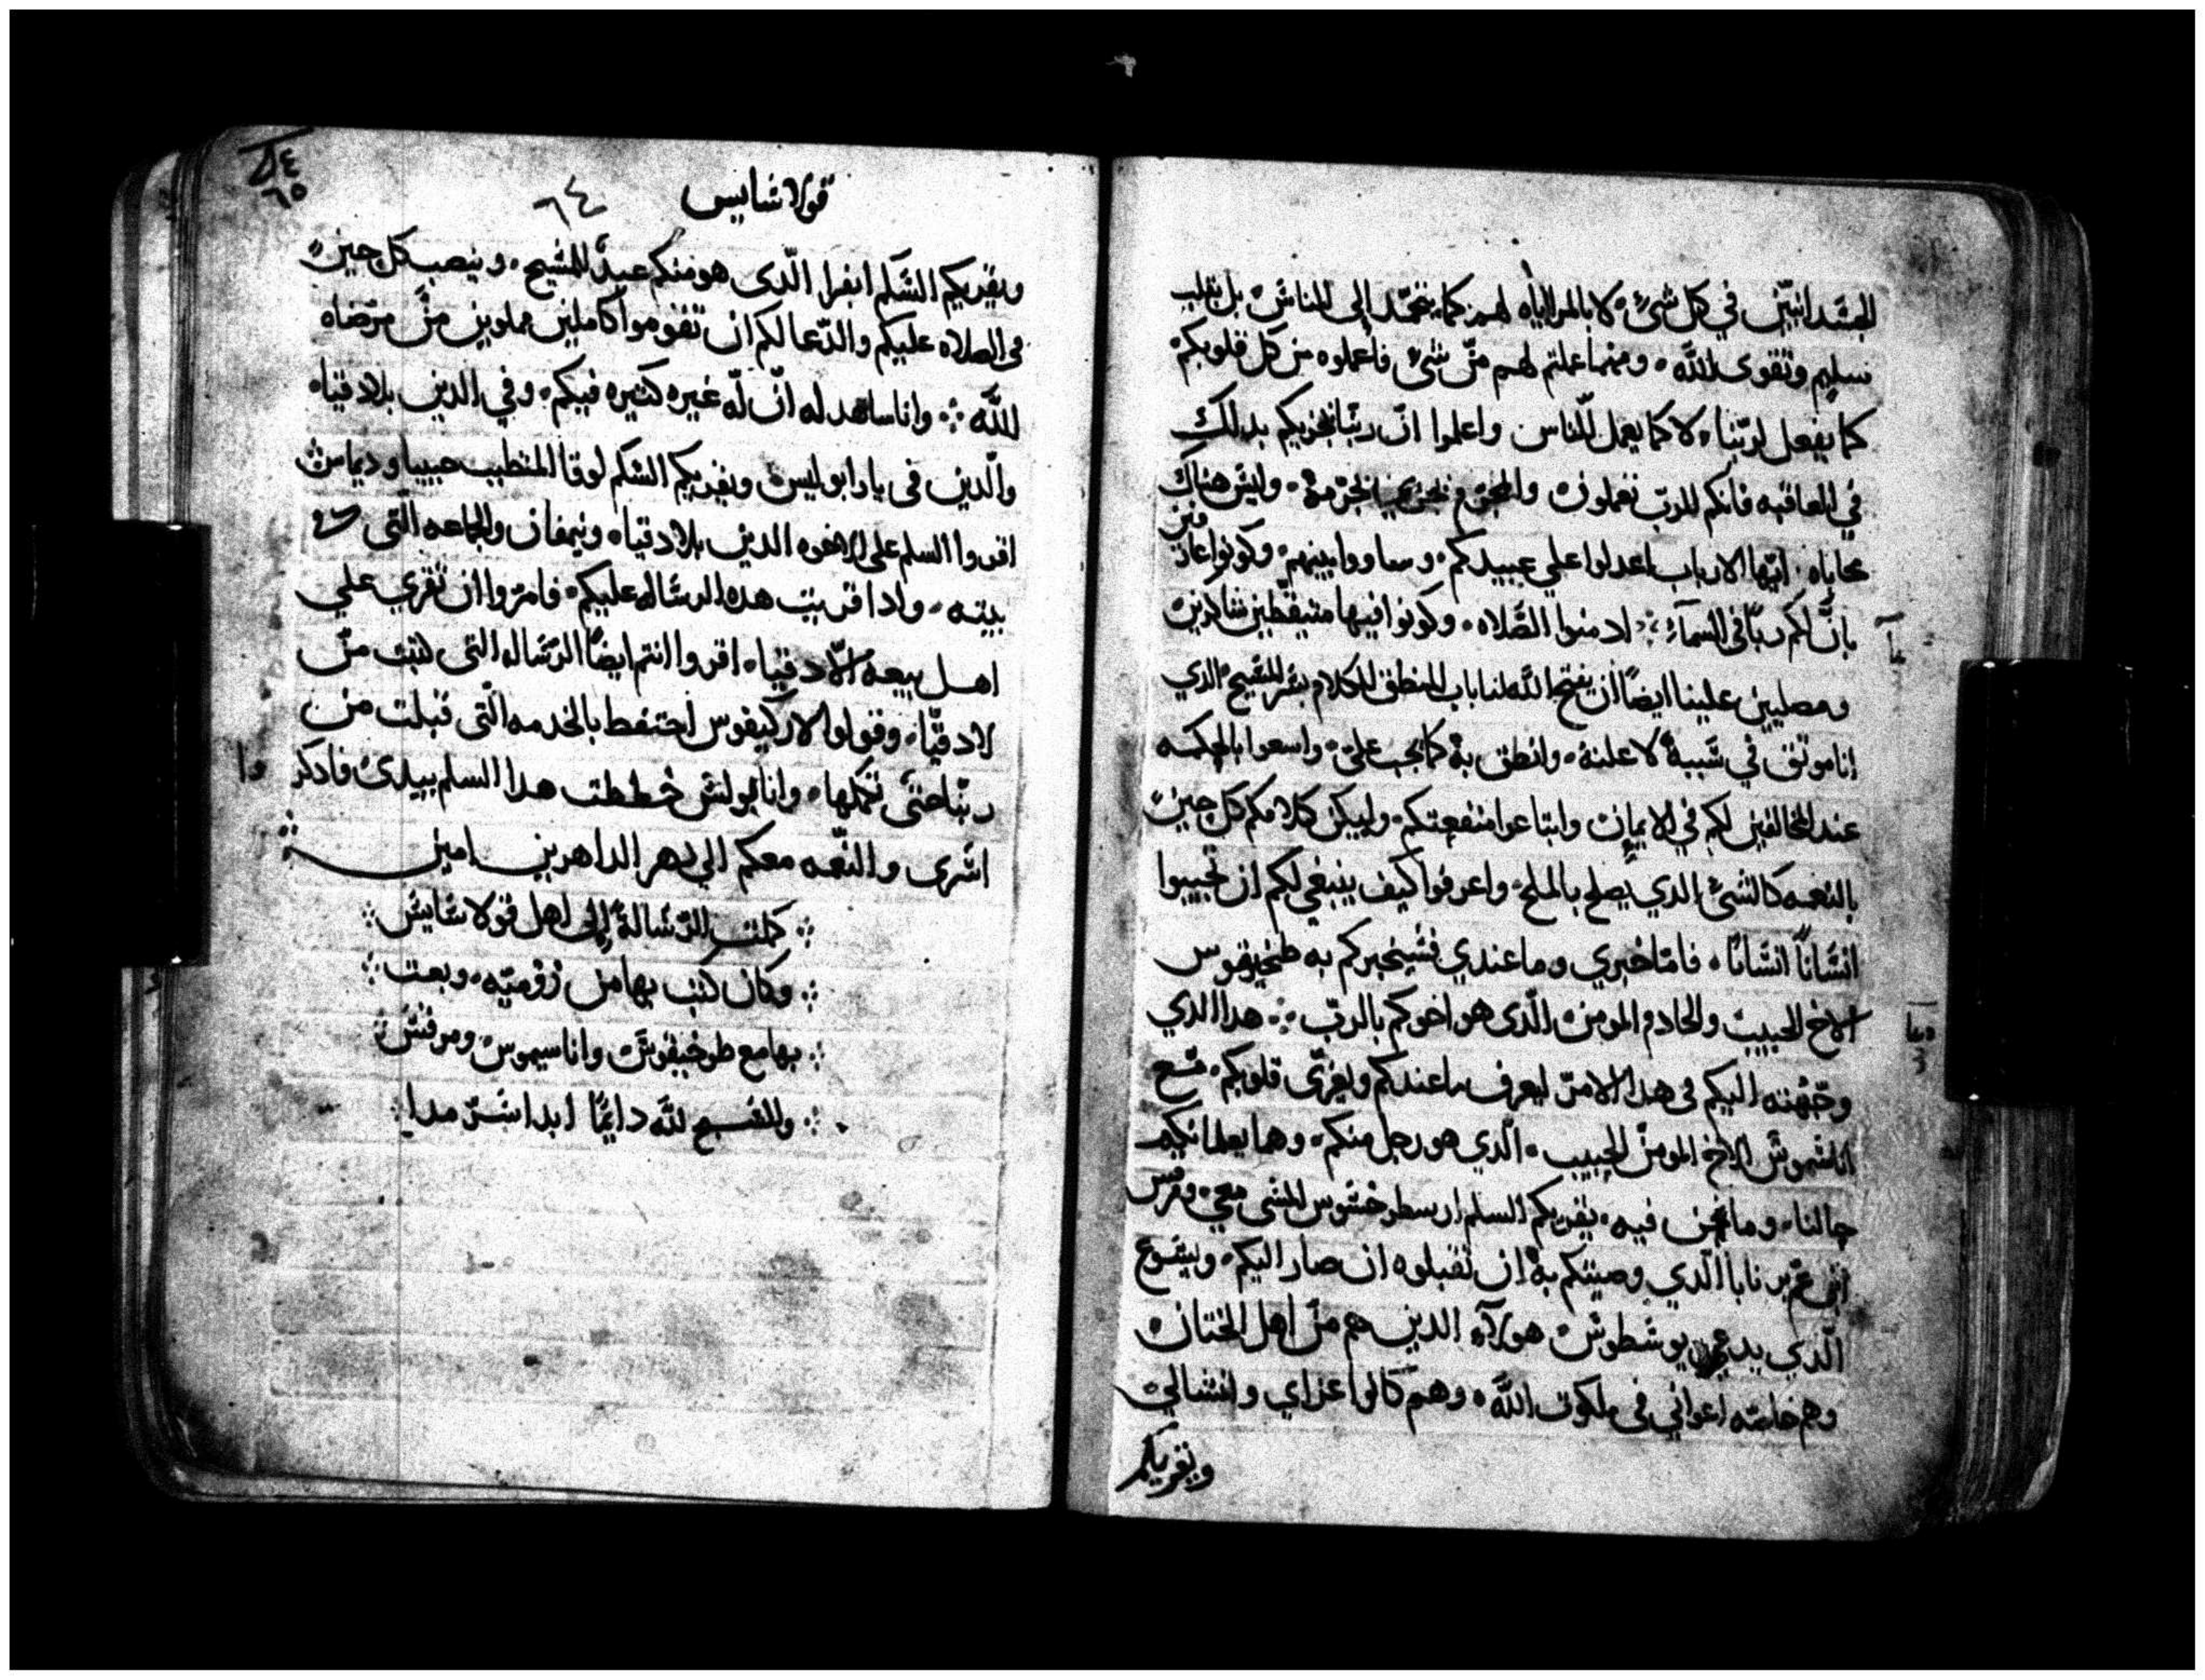 الجسدانيين في كل شئ لا بالمراياه لهم كما يتحمد الى الناس بل بقلب
سليم وتقوى الله ومهما عملتم لهم من شئ فاعملوه من كل قلوبكم
كما يفعل لربنا لا كما يعمل للناس واعلموا ان ربنا يجزيكم بدلك
في العاقبه فانكم للرب تعملون والمجرم يجزى بجرمه وليس هناك
محاباه ايها الارباب اعدلوا علي عبيدكم وساووا بينهم وكونوا عارفين
بان لكم ربا في السماء ادمنوا الصلاه وكونوا فيها متيقظين شاكرين
ومصليين علينا ايضا ان يفتح الله لنا باب المنطق للكلام بسر المسيح الدي
انا موثق في سببه لاعلنه وانطق به كما يجب علي واسعوا بالحكمه
عند المخالفين لكم في الايمان وابتاعوا منفعتكم وليكن كلامكم كل حين
بالنعمه كالشئ الدي يصلح بالملح واعرفوا كيف ينبغي لكم ان تجيبوا
انسانا انسانا فاما خبري وما عندي فسيخبركم به طخيقوس
الاخ الحبيب والخادم المومن الدى هو اخوكم بالرب هدا الدي
وجهته اليكم فى هدا الامر ليعرف ما عندكم ويعزى قلوبكم مع
اناسموس الاخ المومن الحبيب الدي هو رجل منكم وهما يعلمانكم
حالنا وما نحن فيه يقريكم السلم ارسطرخسوس المسبى معي ومرقس
ابن عم برنابا الدي وصيتكم به ان تقبلوه ان صار اليكم ويشوع
الدي يدعى يوسطوس هولاء الدين هم من اهل الختان
وهم خاصه اعواني فى ملكوت الله وهم كانوا عزاي وانسالي
ويقريكم
قولاسايس
٦٤
٦٥
ويقريكم السلم ابفرا الدى هو منكم عبد المسيح وينصب كل حين
فى الصلاه عليكم والدعا لكم ان تقوموا كاملين مملوين من مرضاه
الله وانا ساهد له ان له غيره كثيره فيكم وفي الدين بلادقيا
والدين فى يارابوليس ويقريكم السلم لوقا المتطبب حبيبنا وديماس
اقروا السلم على الاخوه الدين بلادقيا ونيمفان والجماعه التى فى
بيته وادا قريت هده الرساله عليكم فامروا ان تقري علي
اهل بيعة الادقيا اقروا انتم ايضا الرساله التى كتبت من
لادقيا وقولوا لاركيفوس احتفظ بالخدمه التى قبلت من
ربنا حتى تكملها وانا بولس خططت هدا السلم بيدى فادكروا
اسرى والنعمه معكم الي دهر الداهرين امين
كملت الرسالة الى اهل قولاسايس
وكان كتب بها من روميه وبعث
بها مع طوخيقوس واناسيموس ومرقس
والسبح لله دايما ابدا سرمدا